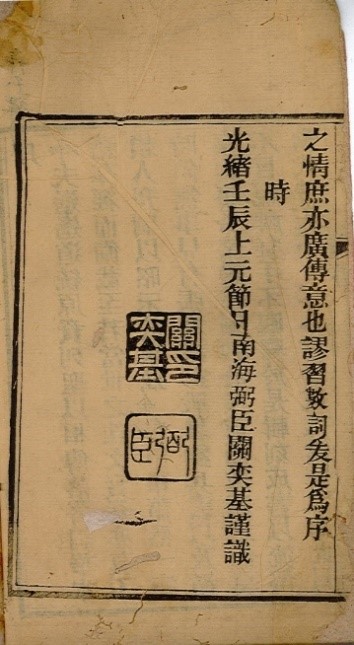 之情庶亦廣傳意也謬習數詞爰是為序
時
光緒壬辰上元節日南海弼臣關奕基謹識
關奕基印
弼臣